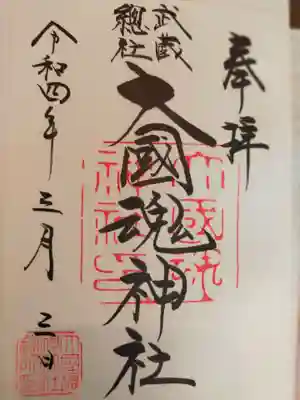 奉拝
武蔵
總社
大國魂神社
令和四年三月三日